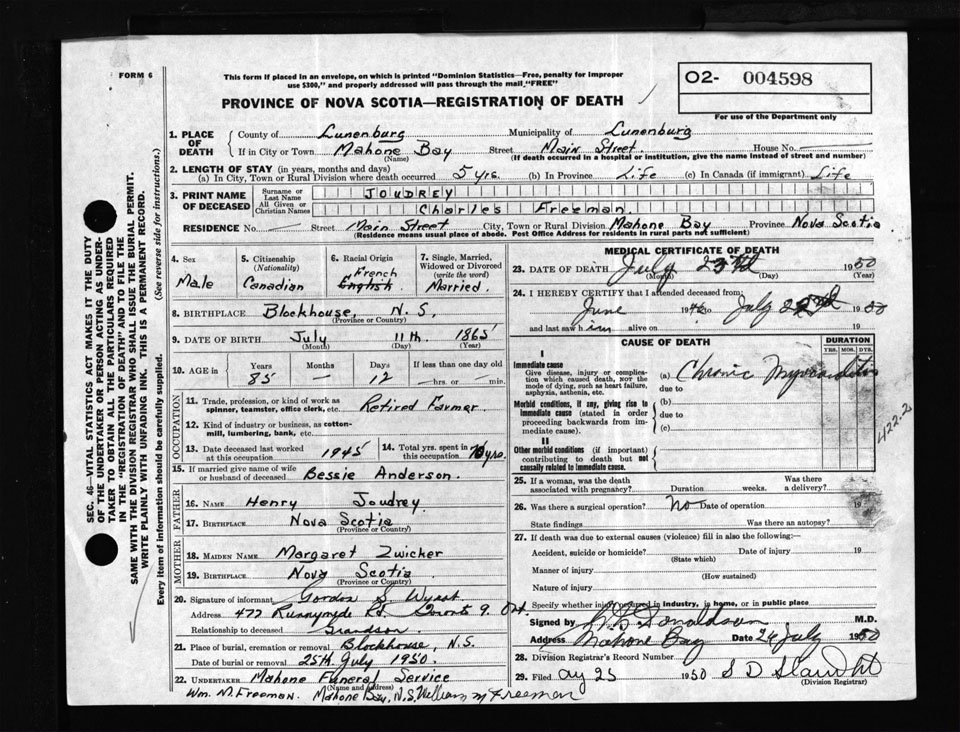 FORM 6
This form if placed in an envelope, on which is printed "Dominion Statistics—Free, penalty for improper
use $300," and properly addressed will pass through the mail "FREE"
O2- 004598
For use of the Department only
PROVINCE OF NOVA SCOTIA—REGISTRATION OF DEATH
SEC. 46—VITAL STATISTICS ACT MAKES IT THE DUTY
OF THE UNDERTAKER OR PERSON ACTING AS UNDER-
TAKER TO OBTAIN ALL THE PARTICULARS REQUIRED
IN THE "REGISTRATION OF DEATH" AND TO FILE THE
SAME WITH THE DIVISION REGISTRAR WHO SHALL ISSUE THE BURIAL PERMIT.
WRITE PLAINLY WITH UNFADING INK. THIS IS A PERMANENT RECORD.
Every item of information should be carefully supplied. (See reverse side for instructions.)
1. PLACE OF DEATH County of Lunenburg Municipality of Lunenburg
If in City or Town Mahone Bay Street Main Street. House No.
(Name) (If death occurred in a hospital or institution, give the name instead of street and number)
2. LENGTH OF STAY (in years, months and days)
(a) In City, Town or Rural Division where death occurred 5 yrs. (b) In Province Life (c) In Canada (if immigrant) Life
3. PRINT NAME OF DECEASED Surname or Last Name JOUDREY
All Given or Christian Names Charles Freeman.
RESIDENCE No. — Street Main Street City, Town or Rural Division Mahone Bay Province Nova Scotia
(Residence means usual place of abode. Post Office Address for residents in rural parts not sufficient)
4. Sex
Male
5. Citizenship
(Nationality)
Canadian
6. Racial Origin
French
English
7. Single, Married,
Widowed or Divorced
(write the word)
Married.
8. BIRTHPLACE Blockhouse, N.S.
(Province or Country)
9. DATE OF BIRTH July 11th. 1865
(Month) (Day) (Year)
10. AGE in Years Months Days If less than one day old
85 — 12 hrs. or min.
OCCUPATION
11. Trade, profession, or kind of work as
spinner, teamster, office clerk, etc. Retired Farmer.
12. Kind of industry or business, as cotton-
mill, lumbering, bank, etc.
13. Date deceased last worked
at this occupation 1945
14. Total yrs. spent in
this occupation yrs.
15. If married give name of wife
or husband of deceased Bessie Anderson.
FATHER
16. NAME Henry Joudrey
17. BIRTHPLACE Nova Scotia
(Province or Country)
MOTHER
18. MAIDEN NAME Margaret Zwicker
19. BIRTHPLACE Nova Scotia
(Province or Country)
20. Signature of informant Gordon S. Wyatt
Address 477 Runnymede Rd. Toronto 9. Ont.
Relationship to deceased Grandson
21. Place of burial, cremation or removal Blockhouse, N.S.
Date of burial or removal 25th July 1950.
22. UNDERTAKER Mahone Funeral Service
(Name and Address)
Wm. M. Freeman. Mahone Bay, N.S. William M Freeman
MEDICAL CERTIFICATE OF DEATH
23. DATE OF DEATH July 1950
(Month) (Day) (Year)
24. I HEREBY CERTIFY that I attended deceased from:
June 19 to July 19
and last saw him alive on 19
CAUSE OF DEATH
DURATION
YRS. MOS. DYS.
I
Immediate cause
Give disease, injury or complica-
tion which caused death, not the
mode of dying, such as heart failure,
asphyxia, asthenia, etc.
(a) Chronic Myocarditis
due to
Morbid conditions, if any, giving rise to
immediate cause (stated in order
proceeding backwards from im-
mediate cause).
(b)
due to
(c)
422.2
II
Other morbid conditions (if important)
contributing to death but not
causally related to immediate cause.
25. If a woman, was the death
associated with pregnancy? Duration weeks. Was there
a delivery?
26. Was there a surgical operation? No Date of operation 19
State findings Was there an autopsy?
27. If death was due to external causes (violence) fill in also the following:—
Accident, suicide or homicide? Date of injury 19
(State which)
Manner of injury
(How sustained)
Nature of injury
Specify whether injury occurred in industry, in home, or in public place
Signed by Donaldson M.D.
Address Mahone Bay Date 24 July 1950
28. Division Registrar's Record Number
29. Filed 25 1950 S D
(Division Registrar)